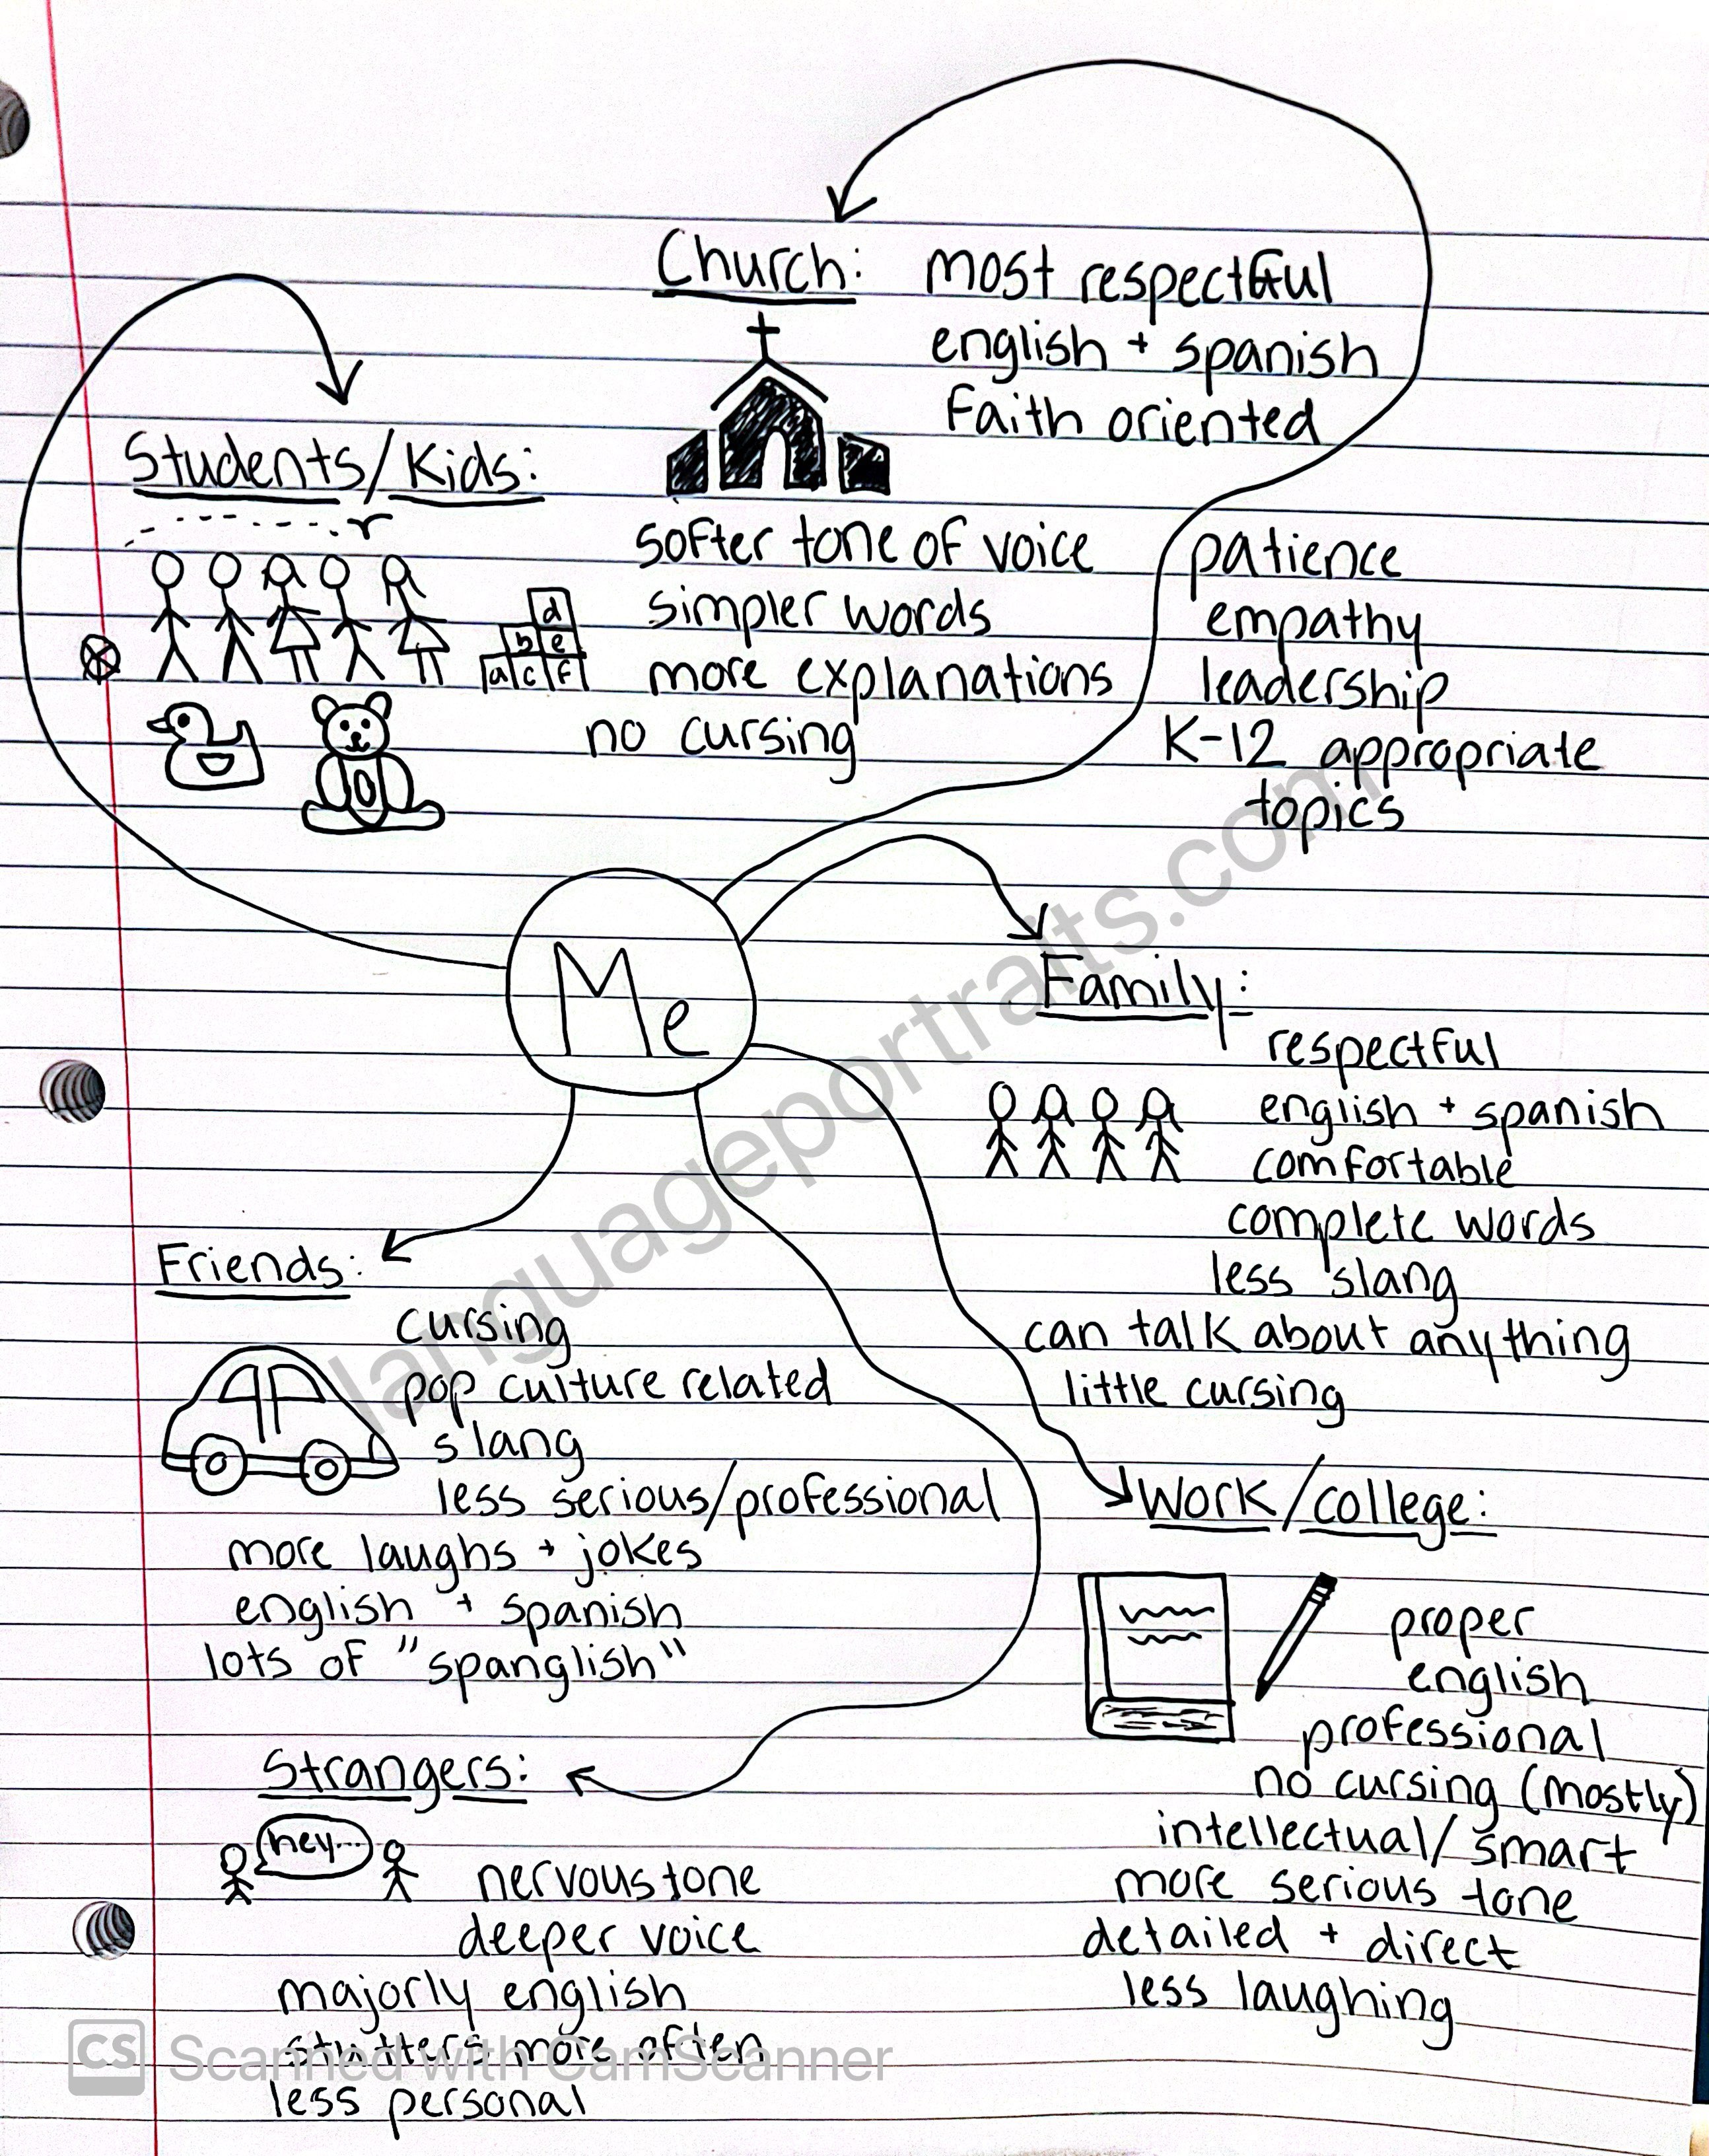 Church: most respectful
english + spanish
Faith oriented
Students/Kids:
softer tone of voice
simpler words
more explanations
no cursing
patience
empathy
leadership
K-12 appropriate
topics
d
b e
a c f
Me
Family:
respectful
english + spanish
comfortable
complete words
less slang
can talk about anything
little cursing
Friends:
cursing
pop culture related
slang
less serious/professional
more laughs + jokes
english + spanish
lots of "spanglish"
Work/college:
proper
english
professional
no cursing (mostly)
intellectual/smart
more serious tone
detailed + direct
less laughing
Strangers:
hey...
nervous tone
deeper voice
majorly english
stutters more often
less personal
languageportraits.com
CS Scanned with CamScanner